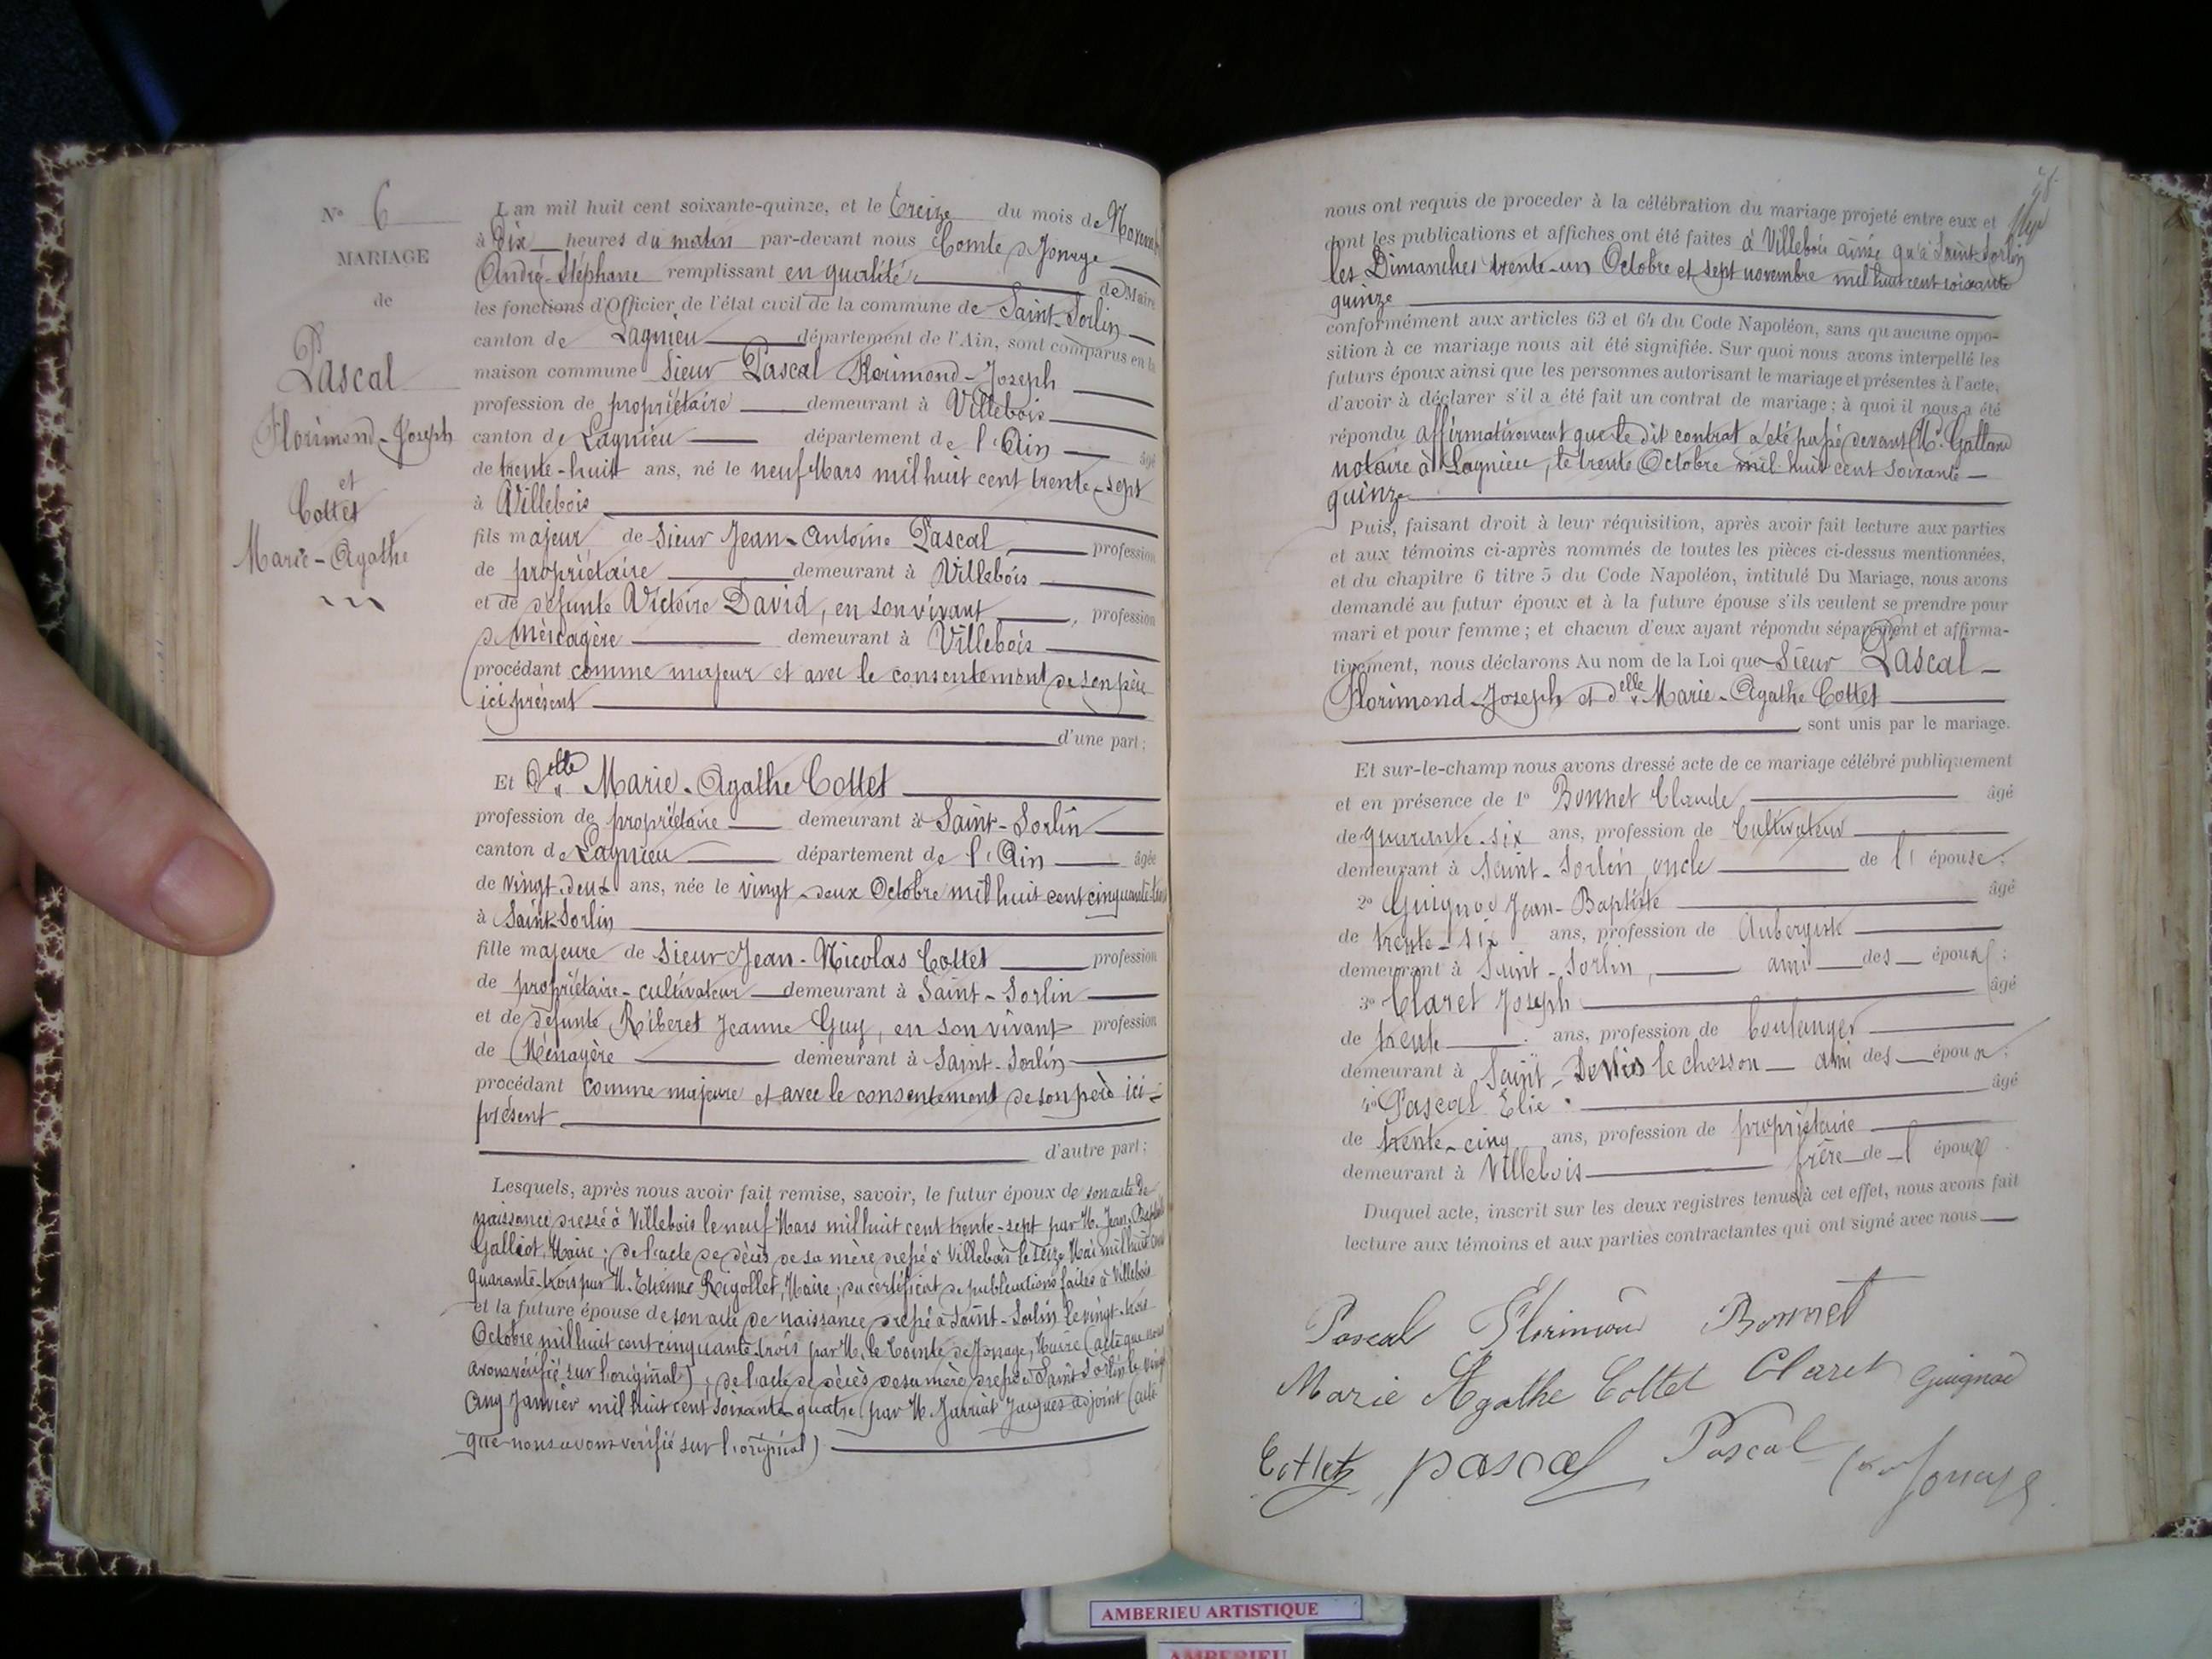 N° 6
MARIAGE
de
Pascal
Florimond-Joseph
et
Cottet
Marie-Agathe
L'an mil huit cent soixante-quinze, et le Treize du mois de Novembre
à Dix heures du matin par-devant nous Comte de Jonage
André-Stéphane remplissant en qualité de Maire
les fonctions d'Officier de l'état civil de la commune de Saint-Sorlin
canton de Lagnieu département de l'Ain, sont comparus en la
maison commune Sieur Pascal Florimond-Joseph
profession de propriétaire demeurant à Villebois
canton de Lagnieu département de l'Ain âgé
de trente-huit ans, né le neuf Mars mil huit cent trente-sept
à Villebois
fils majeur de Sieur Jean-Antoine Pascal profession
de propriétaire demeurant à Villebois
et de défunte Victoire David, en son vivant, profession
de ménagère demeurant à Villebois
procédant comme majeur et avec le consentement de son père
ici présent
d'une part;
Et Delle Marie-Agathe Cottet
profession de propriétaire demeurant à Saint-Sorlin
canton de Lagnieu département de l'Ain âgée
de vingt-deux ans, née le vingt-deux Octobre mil huit cent cinquante-trois
à Saint-Sorlin
fille majeure de Sieur Jean-Nicolas Cottet profession
de propriétaire-cultivateur demeurant à Saint-Sorlin
et de défunte Riberet Jeanne Guy, en son vivant profession
de Ménagère demeurant à Saint-Sorlin
procédant comme majeure et avec le consentement de son père ici-
présent
d'autre part;
Lesquels, après nous avoir fait remise, savoir, le futur époux de son acte de
naissance dressé à Villebois le neuf Mars mil huit cent trente-sept par M. Jean-Baptiste
Galliot, Maire; de l'acte de décès de sa mère dressé à Villebois le seize Mai mil huit cent
quarante-trois par M. Etienne Rigollet, Maire; du certificat de publications faites à Villebois
et la future épouse de son acte de naissance dressé à Saint-Sorlin le vingt-trois
Octobre mil huit cent cinquante-trois par M. le Comte de Jonage, Maire (acte que nous
avons vérifié sur l'original); de l'acte de décès de sa mère dressé à Saint-Sorlin le vingt
cinq Janvier mil huit cent soixante-quatre par M. Jarriat Jacques adjoint (acte
que nous avons vérifié sur l'original)
nous ont requis de proceder à la célébration du mariage projeté entre eux et
dont les publications et affiches ont été faites à Villebois ainsi qu'à Saint-Sorlin
les Dimanches trente-un Octobre et sept novembre mil huit cent soixante
quinze
conformément aux articles 63 et 64 du Code Napoléon, sans qu'aucune oppo-
sition à ce mariage nous ait été signifiée. Sur quoi nous avons interpellé les
futurs époux ainsi que les personnes autorisant le mariage et présentes à l'acte,
d'avoir à déclarer s'il a été fait un contrat de mariage; à quoi il nous a été
répondu affirmativement que le dit contrat a été passé devant M. Galland
notaire à Lagnieu, le trente Octobre mil huit cent soixante-
quinze
Puis, faisant droit à leur réquisition, après avoir fait lecture aux parties
et aux témoins ci-après nommés de toutes les pièces ci-dessus mentionnées,
et du chapitre 6 titre 5 du Code Napoléon, intitulé Du Mariage, nous avons
demandé au futur époux et à la future épouse s'ils veulent se prendre pour
mari et pour femme; et chacun d'eux ayant répondu séparément et affirma-
tivement, nous déclarons Au nom de la Loi que Sieur Pascal
Florimond-Joseph et Delle Marie-Agathe Cottet
sont unis par le mariage.
Et sur-le-champ nous avons dressé acte de ce mariage célébré publiquement
et en présence de 1° Bonnet Claude âgé
de quarante-six ans, profession de Cultivateur
demeurant à Saint-Sorlin, oncle de l'épouse;
2° Guignod Jean-Baptiste âgé
de trente-six ans, profession de Aubergiste
demeurant à Saint-Sorlin, ami des époux;
3° Claret Joseph âgé
de trente ans, profession de boulanger
demeurant à Saint-Denis le chosson ami des époux;
4° Pascal Elie âgé
de trente-cinq ans, profession de propriétaire
demeurant à Villebois frère de l'époux
Duquel acte, inscrit sur les deux registres tenus à cet effet, nous avons fait
lecture aux témoins et aux parties contractantes qui ont signé avec nous
Pascal Florimond Bonnet
Marie Agathe Cottet Claret Guignod
Cottet pascal Pascal Jonage
AMBERIEU ARTISTIQUE
AMBERIEU